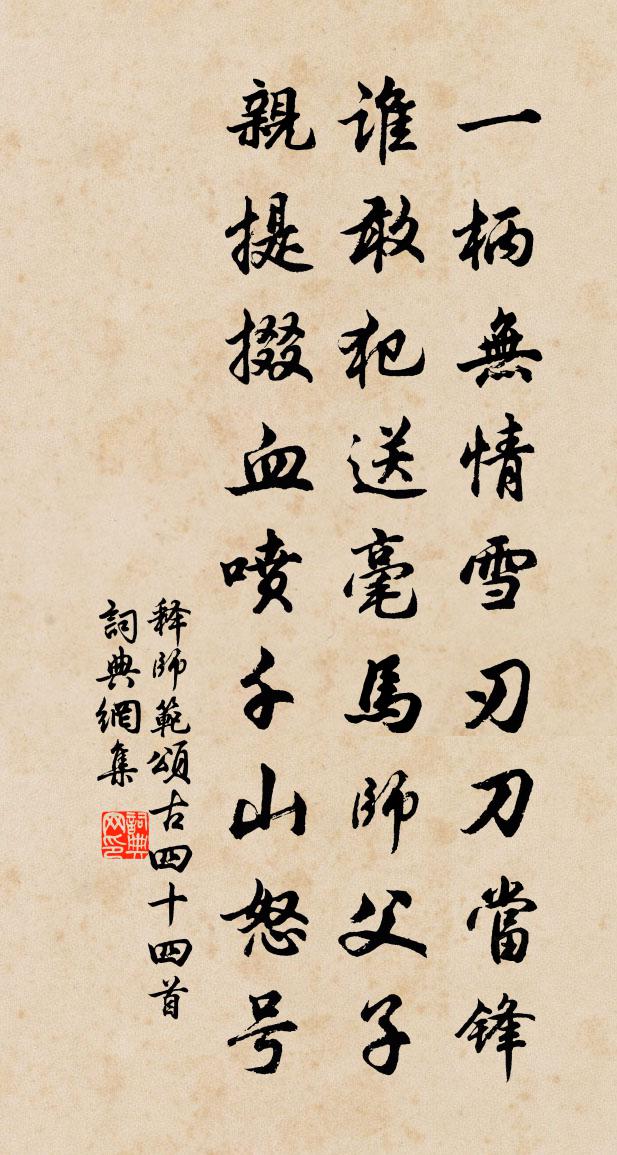 一柄無情雪刃刀當鋒
谁敢犯送毫馬師父子
親提掇血噴千山怒号
释師範頌古四十四首
詞典網集
詞典网印